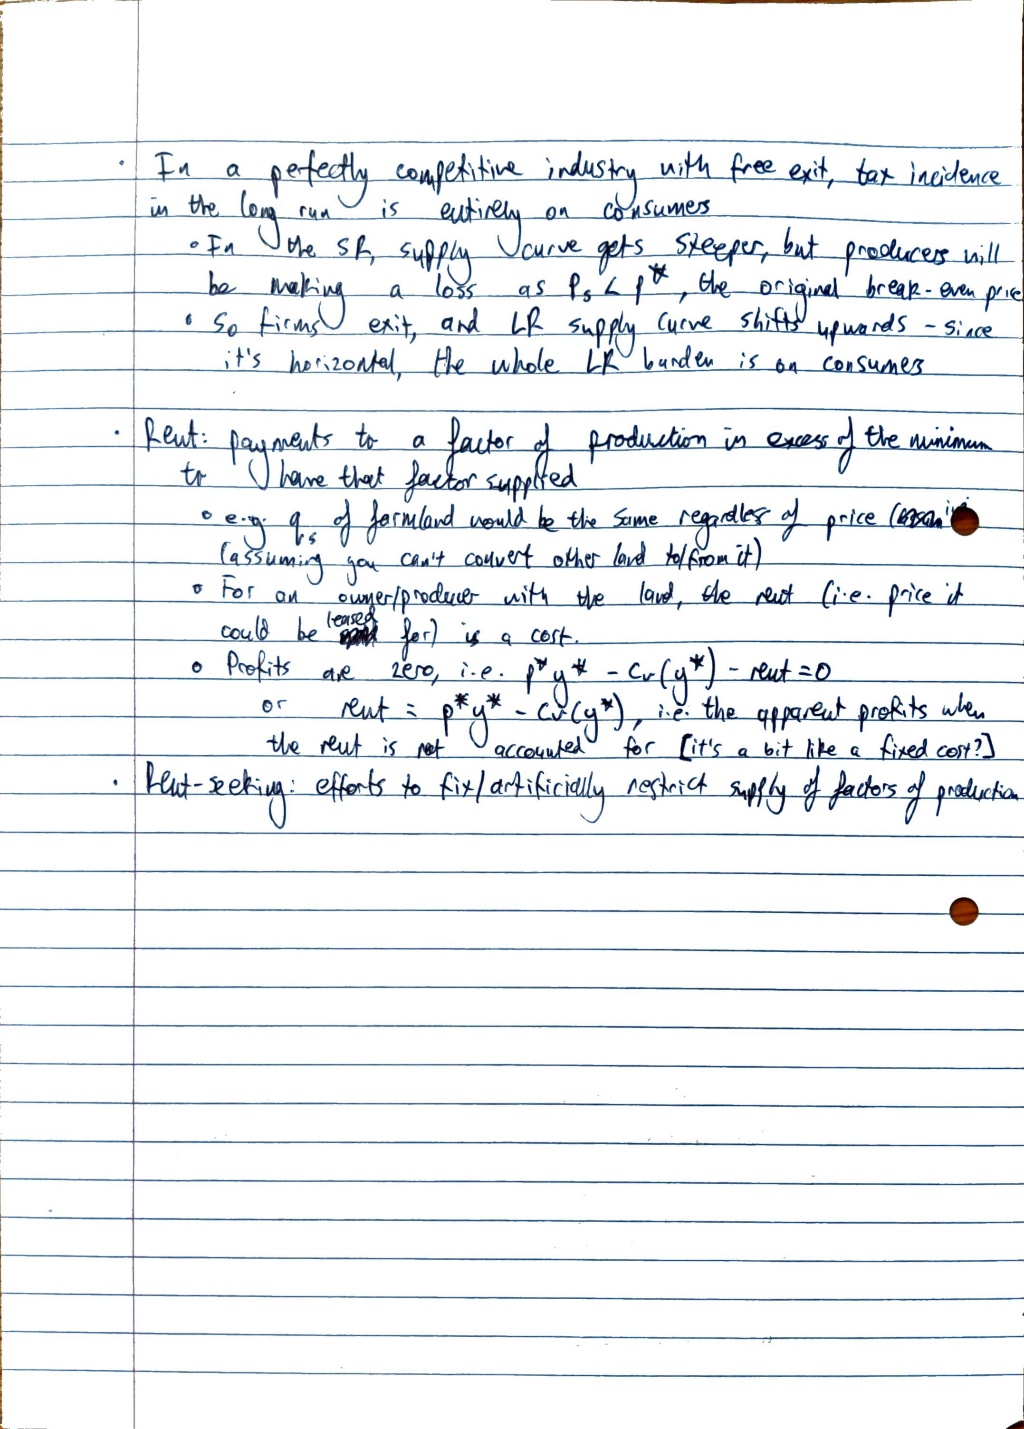 · In a perfectly competitive industry with free exit, tax incidence
in the long run is entirely on consumers
∘ In the SR, supply curve gets steeper, but producers will
be making a loss as Ps < p*, the original break-even price
∘ So firms exit, and LR supply curve shifts upwards - since
it's horizontal, the whole LR burden is on consumers
· Rent: payments to a factor of production in excess of the minimum
to have that factor supplied
∘ e.g. qs of farmland would be the same regardless of price
(assuming you can't convert other land to/from it)
∘ For an owner/producer with the land, the rent (i.e. price it
could be leased for) is a cost.
∘ Profits are zero, i.e. p*y* - Cv(y*) - rent = 0
or rent = p*y* - Cv(y*), i.e. the apparent profits when
the rent is not accounted for [it's a bit like a fixed cost?]
· Rent-seeking: efforts to fix/artificially restrict supply of factors of production